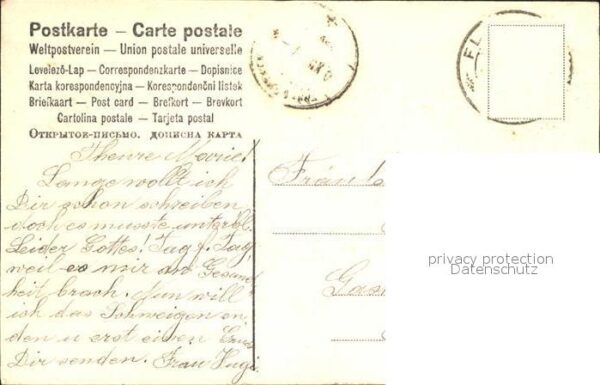 Postkarte – Carte postale
Weltpostverein – Union postale universelle
Levelező-Lap – Correspondenzkarte – Dopisnice
Karta korespondencyjna – Korespondenční listek
Briefkaart – Post card – Brefkort – Brevkort
Cartolina postale – Tarjeta postal
Открытое-письмо. дописна карта
Theure Marie!
Lange wollt ich
Dir schon schreiben,
doch es musste unterbl.
Leider Gottes! Tag f. Tag,
weil es mir an Gesund
heit brach. Nun will
ich das Schweigen en
den u erst einen
Dir senden. Frau Hugi.
FL
privacy protection
Datenschutz